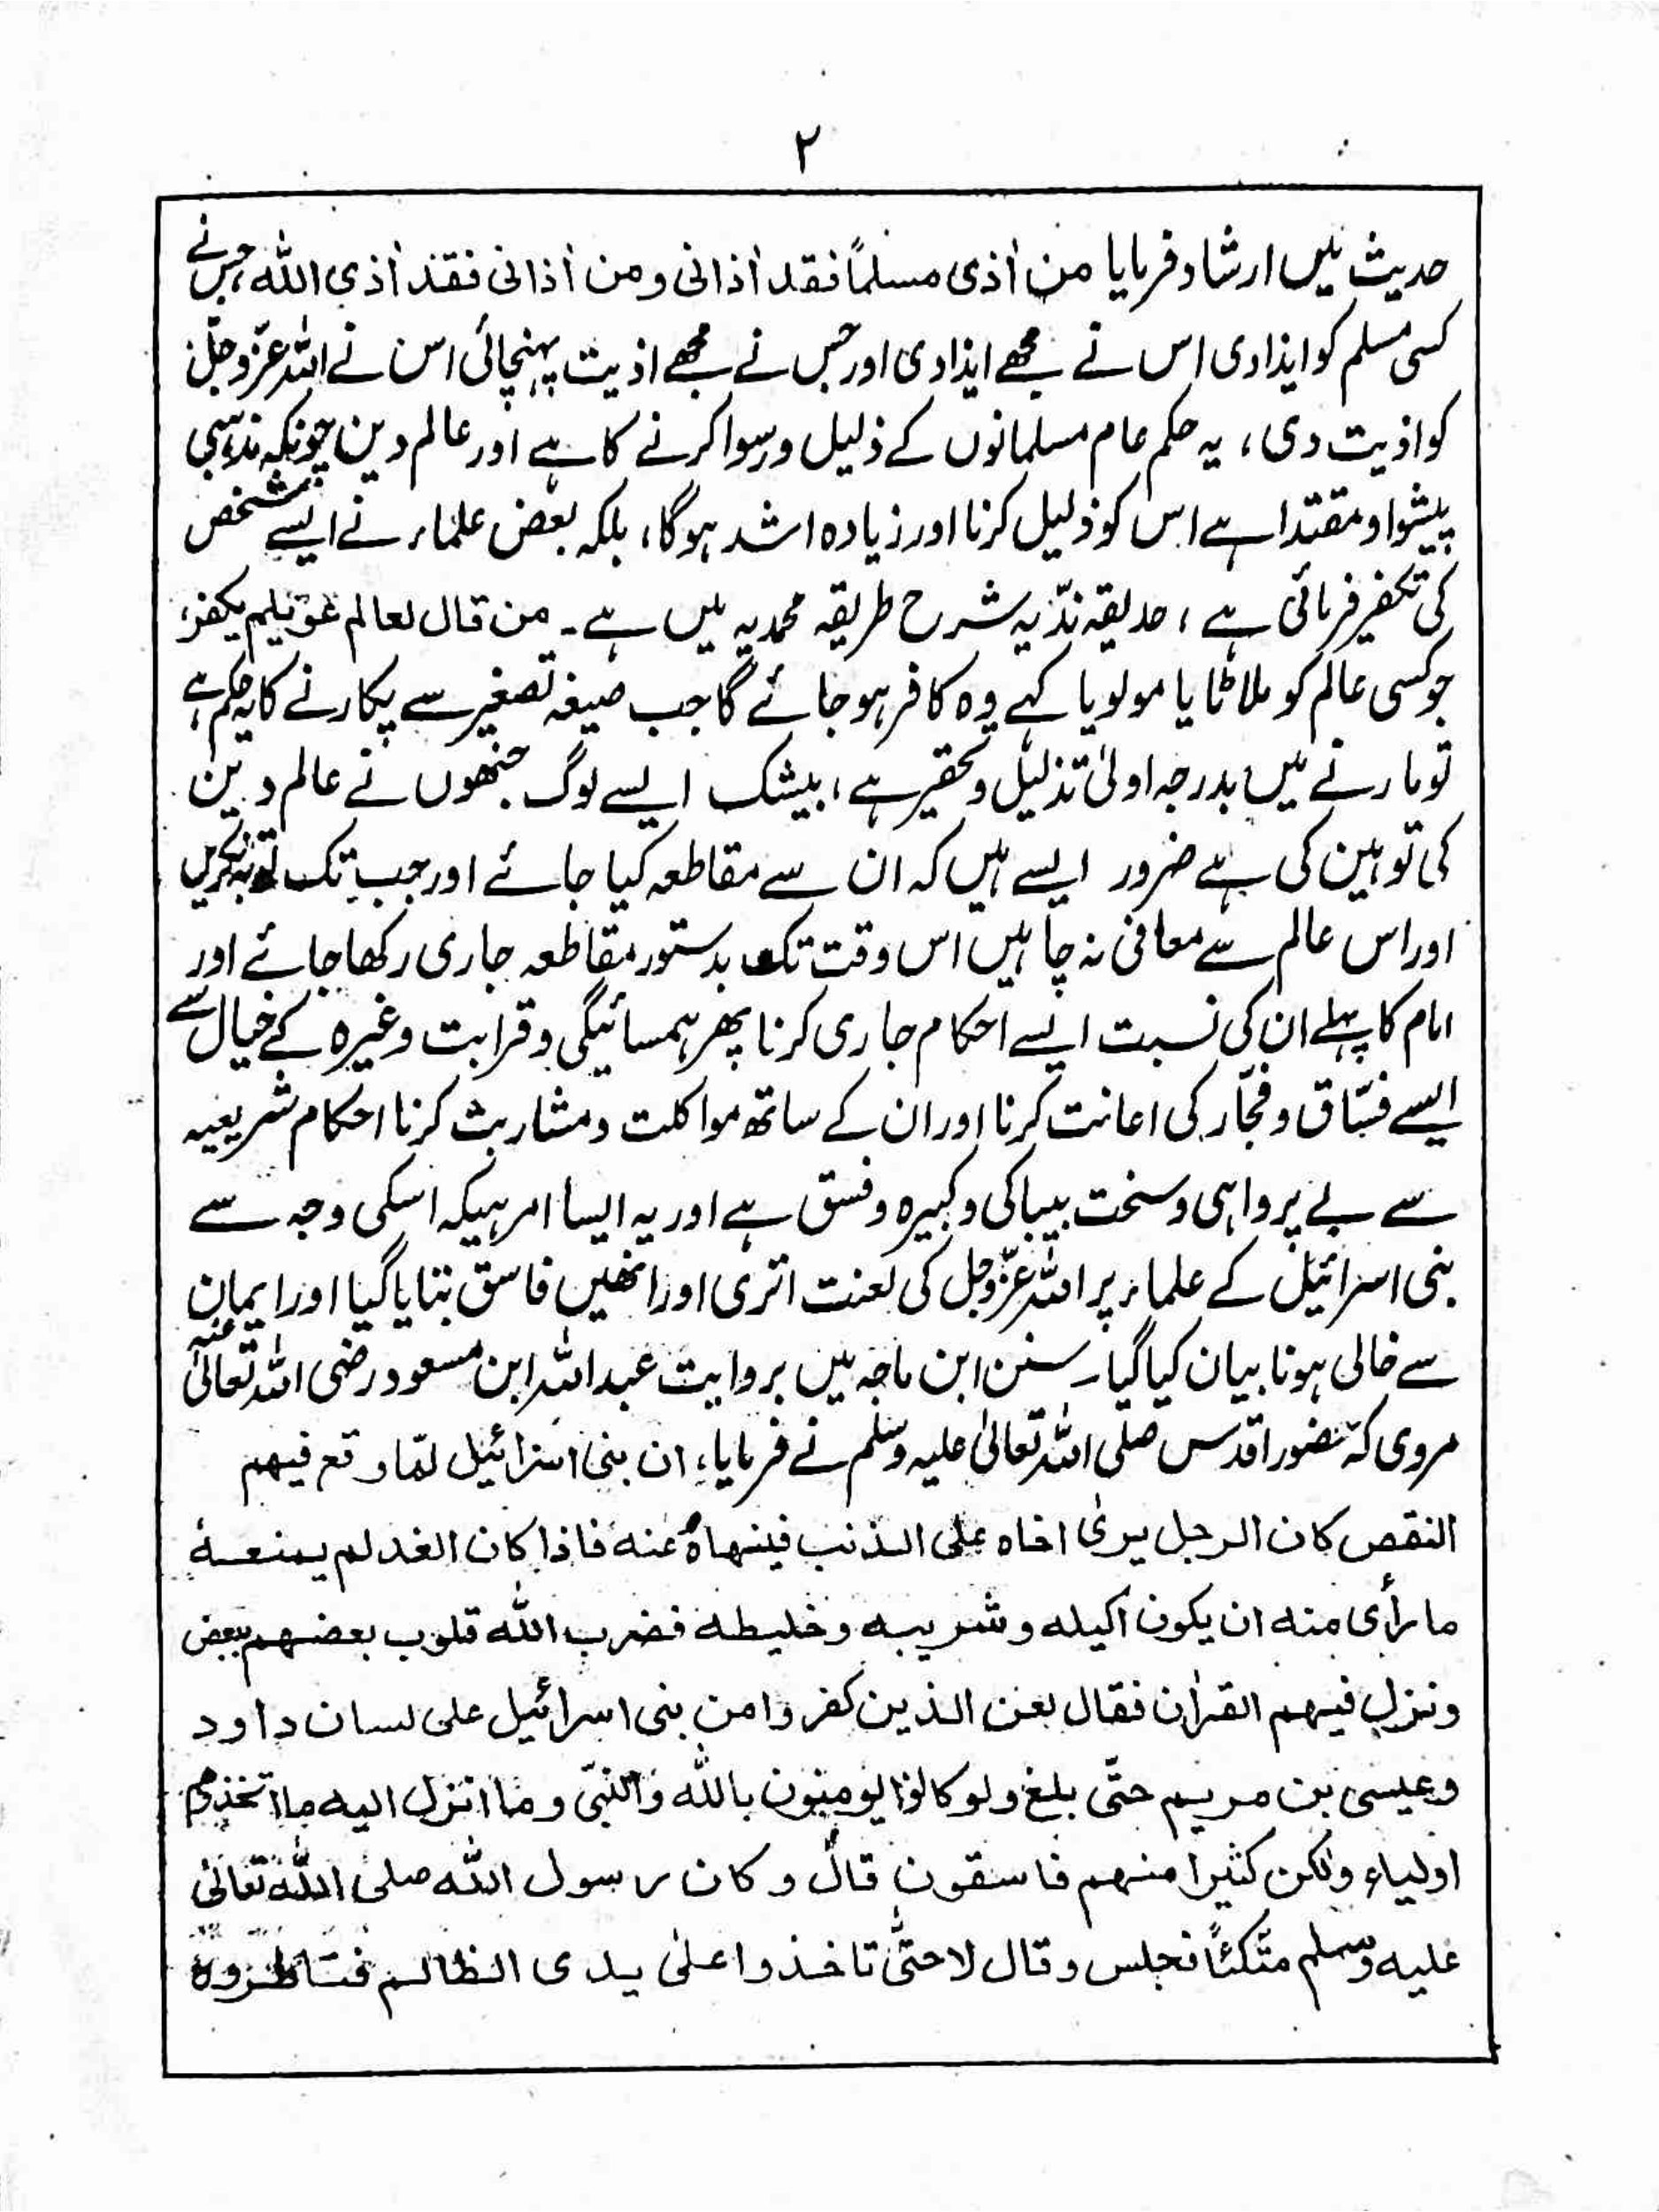 ۲
حدیث میں ارشاد فرمایا من اٰذی مسلماً فقد اٰذانی ومن اٰذانی فقد اٰذی اللہ، جس نے
کسی مسلم کو ایذا دی اس نے مجھے ایذا دی اور جس نے مجھے اذیت پہنچائی اس نے اللہ عزّوجلّ
کو اذیت دی، یہ حکم عام مسلمانوں کے ذلیل ورسوا کرنے کا ہے اور عالم دین چونکہ مذہبی
پیشوا ومقتدا ہے اس کو ذلیل کرنا اور زیادہ اشد ہوگا، بلکہ بعض علماء نے ایسے شخص
کی تکفیر فرمائی ہے، حدیقہ ندّیہ شرح طریقہ محمدیہ میں ہے۔ من قال لعالم عویلم یکفر،
جو کسی عالم کو ملاٹا یا مولویا کہے وہ کافر ہو جائے گا جب صیغہ تصغیر سے پکارنے کا یہ حکم ہے
تو مارنے میں بدرجہ اولیٰ تذلیل وتحقیر ہے، بیشک ایسے لوگ جنھوں نے عالم دین
کی توہین کی ہے ضرور ایسے ہیں کہ ان سے مقاطعہ کیا جائے اور جب تک توبہ نہ کریں
اور اس عالم سے معافی نہ چاہیں اس وقت تک بدستور مقاطعہ جاری رکھا جائے اور
امام کا پہلے ان کی نسبت ایسے احکام جاری کرنا پھر ہمسائیگی وقرابت وغیرہ کے خیال سے
ایسے فسّاق وفجّار کی اعانت کرنا اور ان کے ساتھ مواکلت ومشاربت کرنا احکام شریعیہ
سے بے پرواہی وسخت بیباکی وکبیرہ وفسق ہے اور یہ ایسا امر ہیکہ اسکی وجہ سے
بنی اسرائیل کے علماء پر اللہ عزّوجل کی لعنت اتری اور انھیں فاسق بتایا گیا اور ایمان
سے خالی ہونا بیان کیا گیا۔ سنن ابن ماجہ میں بروایت عبداللہ ابن مسعود رضی اللہ تعالیٰ عنہ
مروی کہ حضور اقدس صلی اللہ تعالیٰ علیہ وسلم نے فرمایا، ان بنی اسرائیل لمّا وقع فیھم
النقص کان الرجل یریٰ اخاہ علی الذنب فینھاہُ عنہ فاذا کان الغد لم یمنعہٗ
ما رأی منہ ان یکون اکیلہ وشریبہ وخلیطہ فضرب اللہ قلوب بعضھم ببعض
ونزل فیھم القراٰن فقال لعن الذین کفروا من بنی اسرائیل علی لسان داود
وعیسی بن مریم حتّی بلغ ولو کانوا یومنون باللہ والنبّی وما انزل الیہ ما اتخذوھم
اولیاء ولٰکن کثیرا منھم فاسقون قال وکان رسول اللہ صلی اللہ تعالیٰ
علیہ وسلم متّکئاً فجلس وقال لا حتّٰی تاخذوا علیٰ یدی الظالم فتاطروہٗ